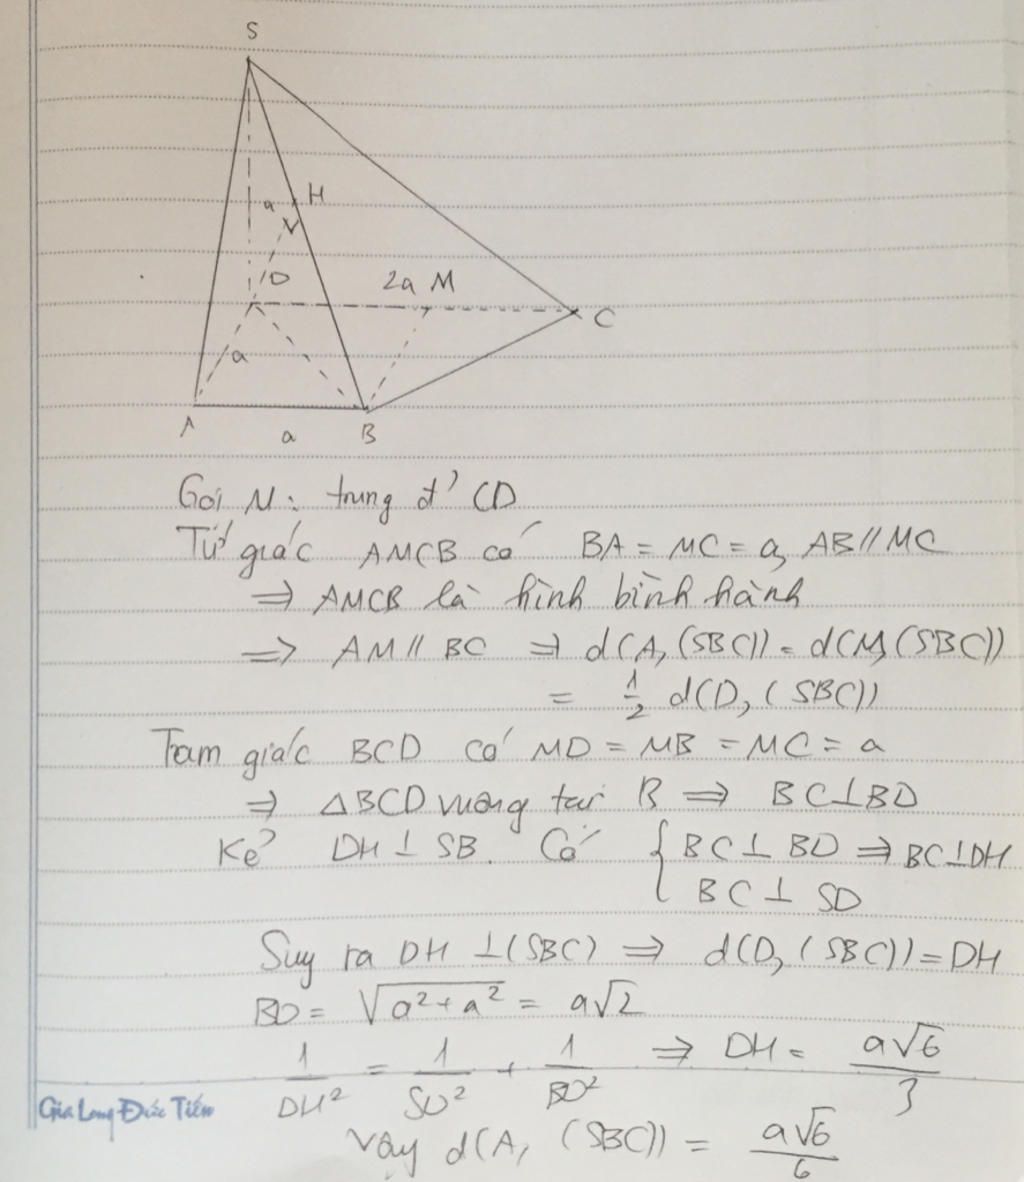 S
a H
D 2a M
C
a
A a B
Gọi M: trung đ' CD
Tứ giác AMCB có BA = MC = a, AB // MC
⇒ AMCB là hình bình hành
⇒ AM // BC ⇒ d(A, (SBC)) = d(M, (SBC))
= 1/2 d(D, (SBC))
Tam giác BCD có MD = MB = MC = a
⇒ ΔBCD vuông tại B ⇒ BC⊥BD
Kẻ DH ⊥ SB. Có { BC ⊥ BD ⇒ BC⊥DH
BC ⊥ SD
Suy ra DH ⊥ (SBC) ⇒ d(D, (SBC)) = DH
BD = √(a² + a²) = a√2
1/DH² = 1/SD² + 1/BD² ⇒ DH = a√6/3
Gia Long Đức Tiến
Vậy d(A, (SBC)) = a√6/6